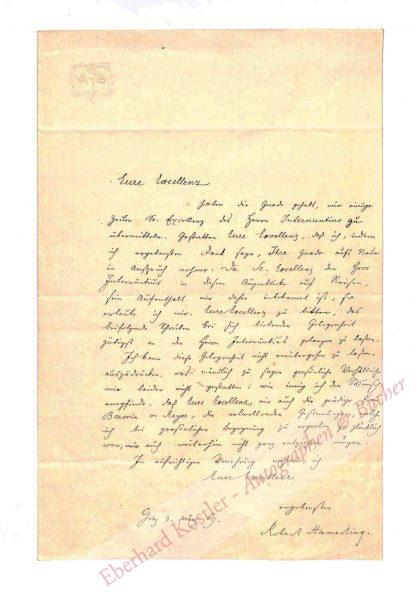 Eure Excellenz
haben die Gnade gehabt, mir einige
Zeilen Sr. Excellenz des Herrn Internuntius zu
übermitteln. Gestatten Eure Excellenz, daß ich, indem
ich ergebensten Dank sage, Ihre Gnade aufs Neue
in Anspruch nehme. Da Se. Excellenz der Herr
Internuntius in diesem Augenblicke auf Reisen,
sein Aufenthalt mir daher unbekannt ist, so
erlaube ich mir, Eure Excellenz zu bitten, das
beifolgende Schreiben bei sich bietender Gelegenheit
gütigst an den Herrn Internuntius gelangen zu lassen.
Ich kann diese Gelegenheit nicht vorübergehen zu lassen,
auszudrücken, was mündlich zu sagen persönliche Verhältnisse
mir leider nicht gestatten: wie innig ich den Wunsch
empfinde, daß Eure Excellenz, wie auch die gnädige Frau
Baronin die wohlwollenden Gesinnungen, welche
ich bei persönlicher Begegnung zu so glücklich
war, mir auch weiterhin nicht ganz entziehen mögen.
In aufrichtiger Verehrung ich
Eurer Excellenz
ergebenster
Graz 3. März
Robert Hamerling.
Eberhard Köstler - Autographen & Bücher